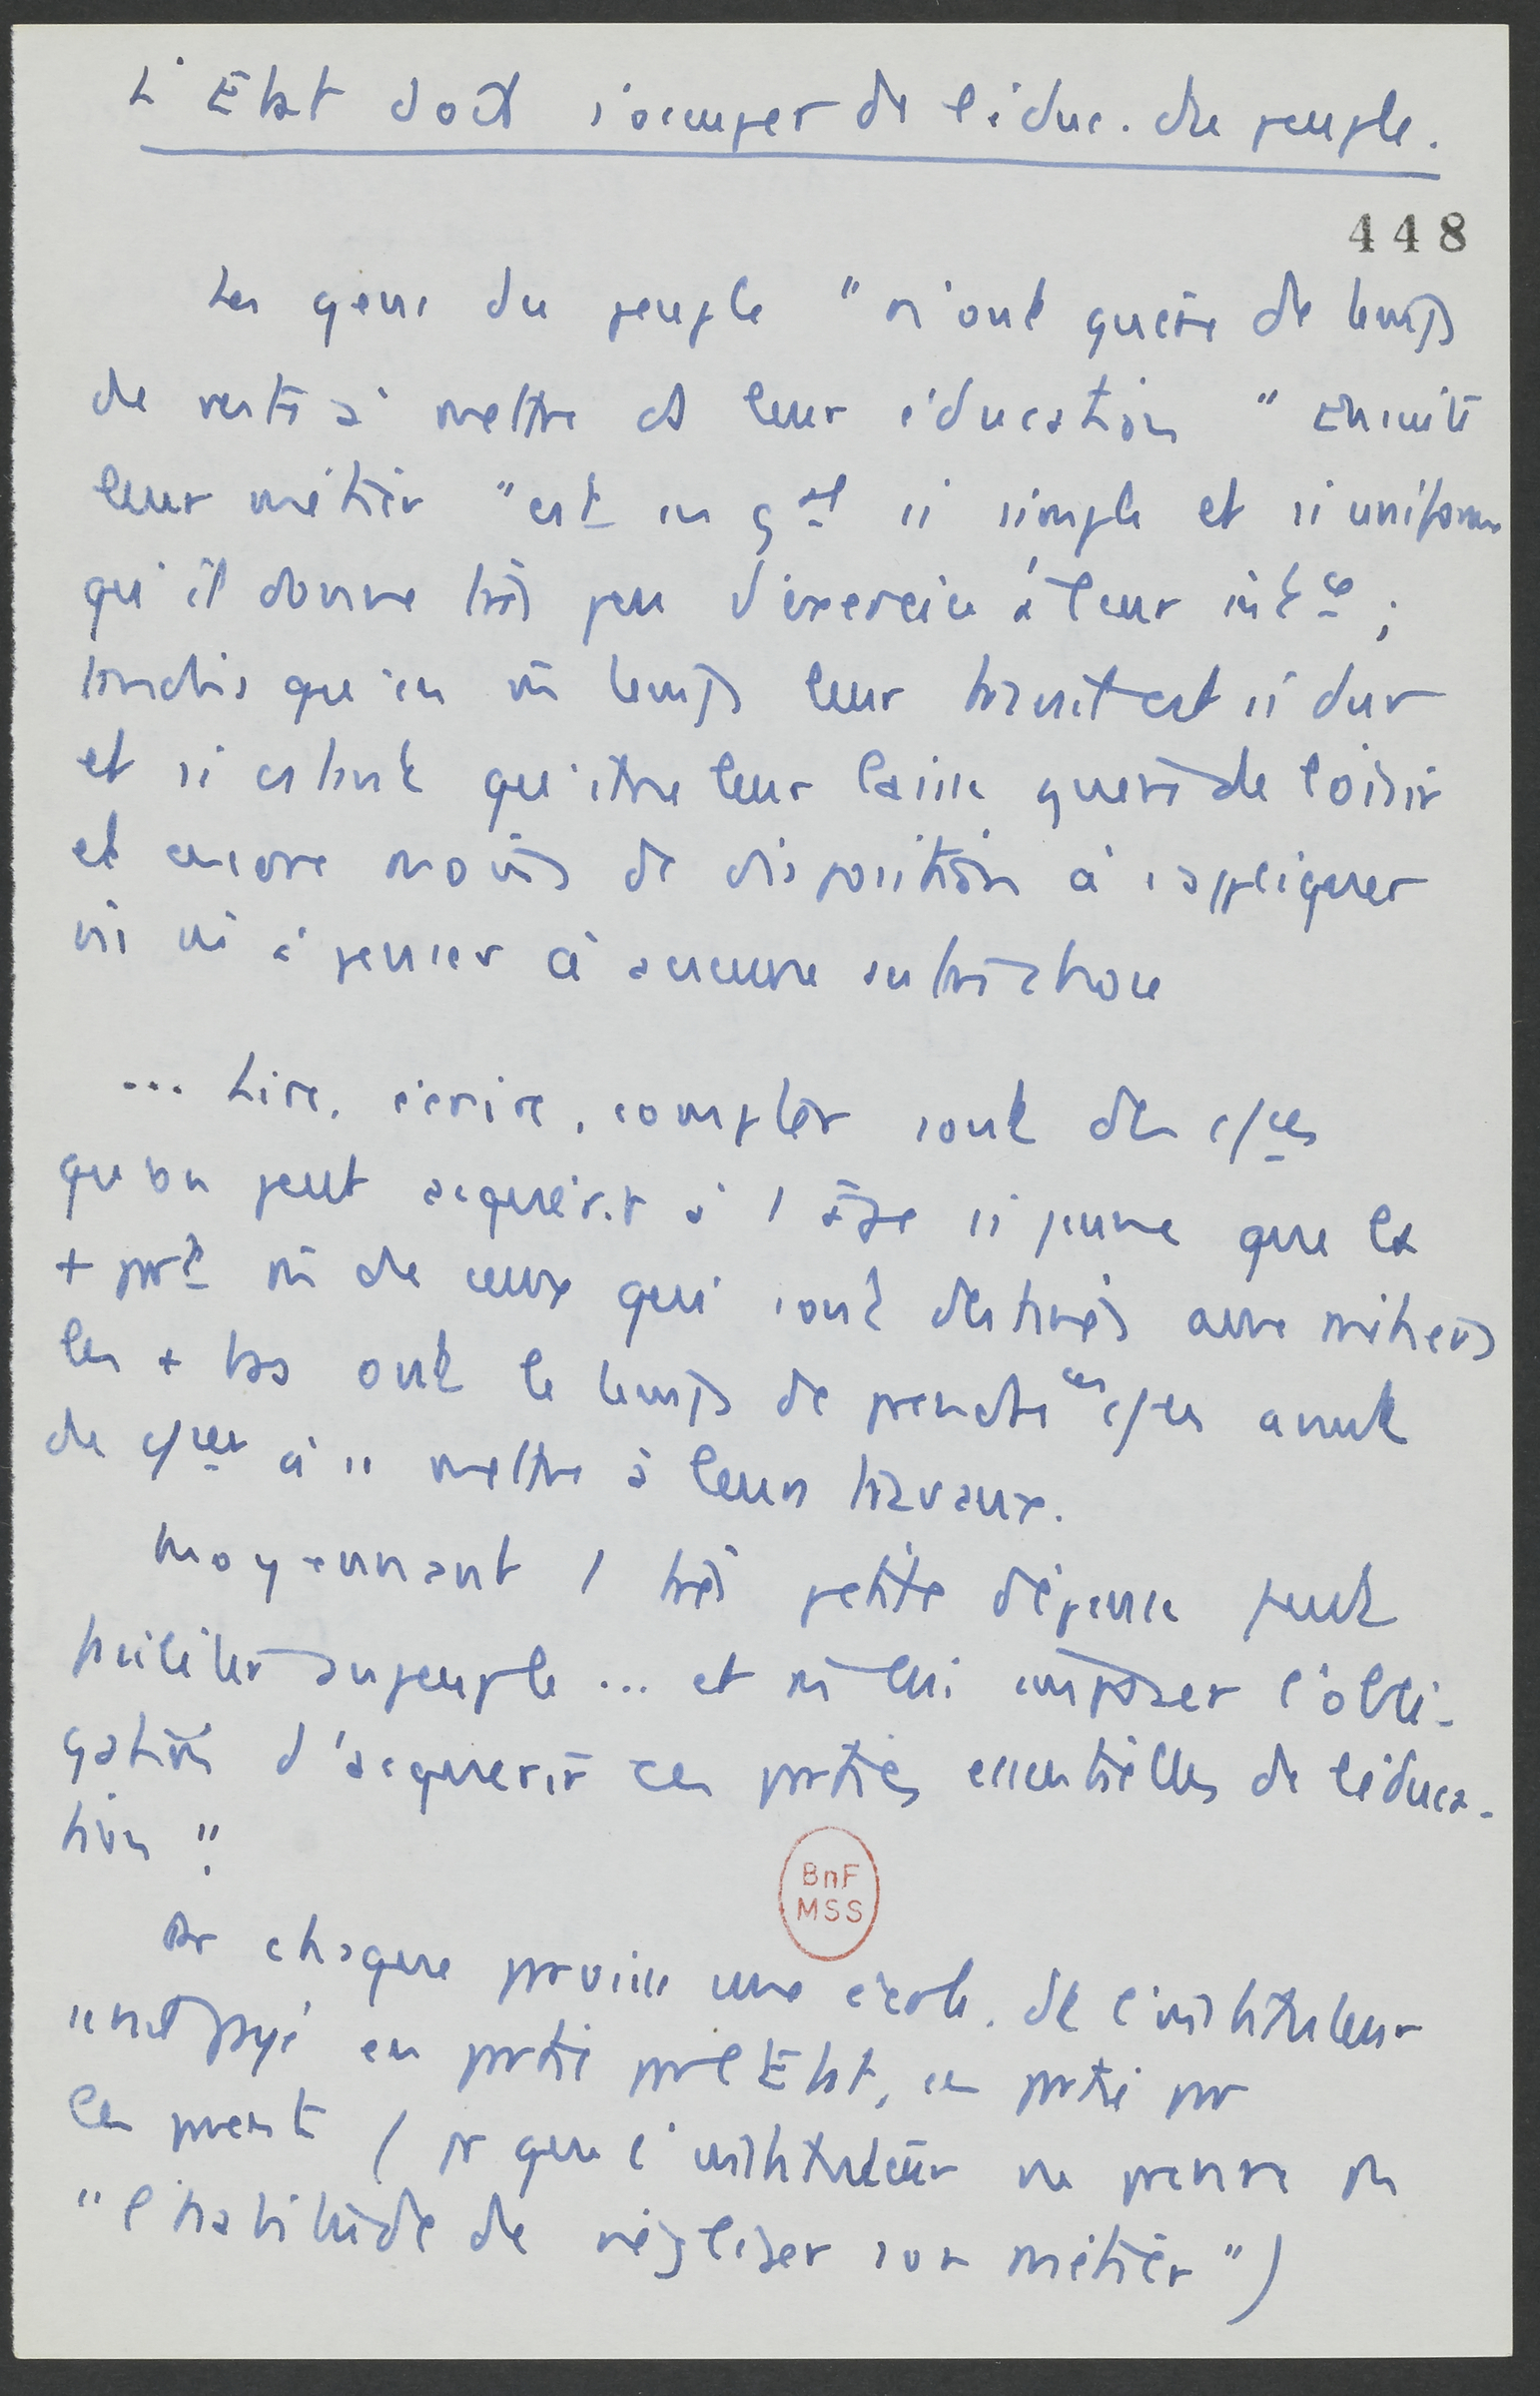 L'Etat doit s'occuper de l'éduc. du peuple.
448
Les gens du peuple "n'ont guère de temps
de reste à mettre à leur éducation" Ensuite
leur métier "est en gal si simple et si uniforme
qu'il donne très peu d'exercice à leur intce ;
tandis qu'en m̄ temps leur travail est si dur
et si constant qu'il ne leur laisse guère de loisir
et encore moins de disposition à s'appliquer
ni m̄ à penser à aucune autre chose
... Lire, écrire, compter sont des c/ces
qu'on peut acquérir à 1 âge si jeune que la
+ part m̄ de ceux qui sont destinés aux métiers
les + bas ont le temps de prendre ces c/ces avant
de c/cer à se mettre à leurs travaux.
Moyennant 1 très petite dépense peut
faciliter au peuple ... et m̄ lui imposer l'obli-
gation d'acquérir ces parties essentielles de l'éduca-
tion".
Ds chaque paroisse une école, dt l'instituteur
serait payé en partie par l'Etat, en partie par
les parents (pr que l'instituteur ne prenne pas
"l'habitude de négliger son métier")
BnF
MSS